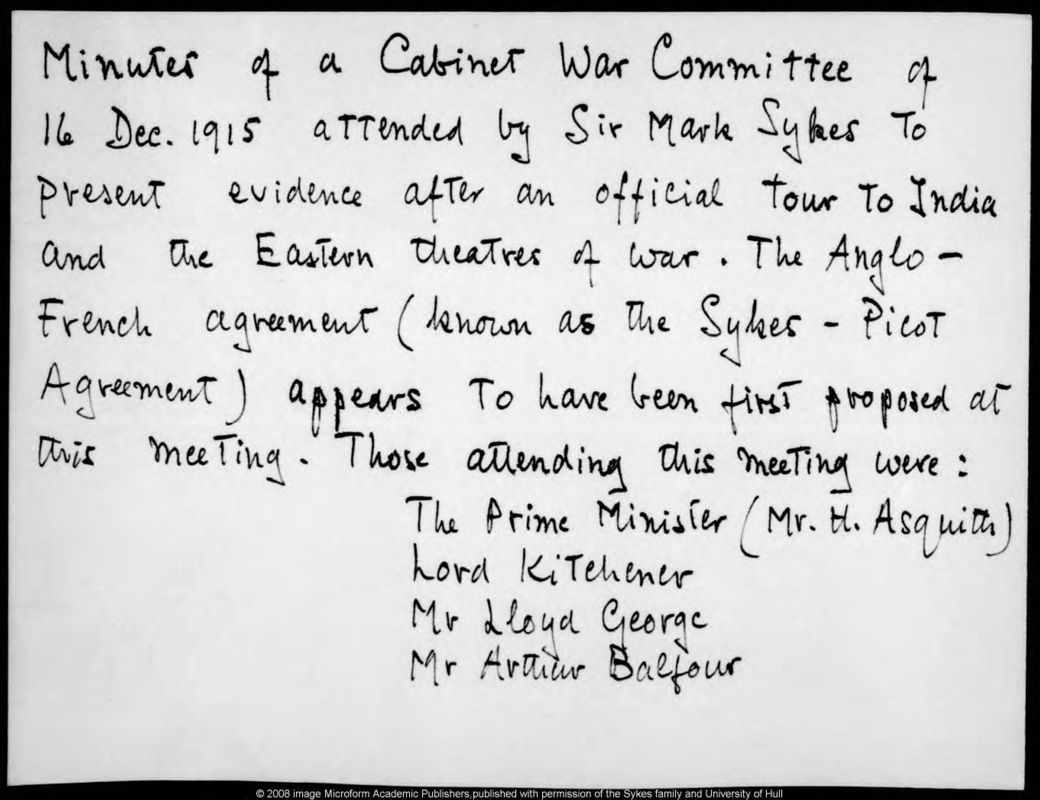 Minutes of a Cabinet War Committee of
16 Dec. 1915 attended by Sir Mark Sykes to
present evidence after an official tour to India
and the Eastern theatres of war. The Anglo-
French agreement (known as the Sykes - Picot
Agreement) appears to have been first proposed at
this meeting. Those attending this meeting were:
The Prime Minister (Mr. H. Asquith)
Lord Kitchener
Mr Lloyd George
Mr Arthur Balfour
© 2008 image Microform Academic Publishers,published with permission of the Sykes family and University of Hull